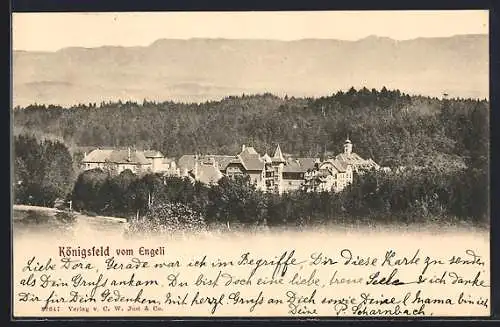 Königsfeld vom Engeli
Liebe Dora, Gerade war ich im Begriffe Dir diese Karte zu senden
als Dein Gruß ankam. Du bist doch eine liebe, treue Seele, ich danke
Dir für Dein Gedenken. Mit herzl. Gruß an Dich sowie Deine l. Mama bin ich
Deine P. Scharnbach.
Verlag v. C. W. Just & Co.